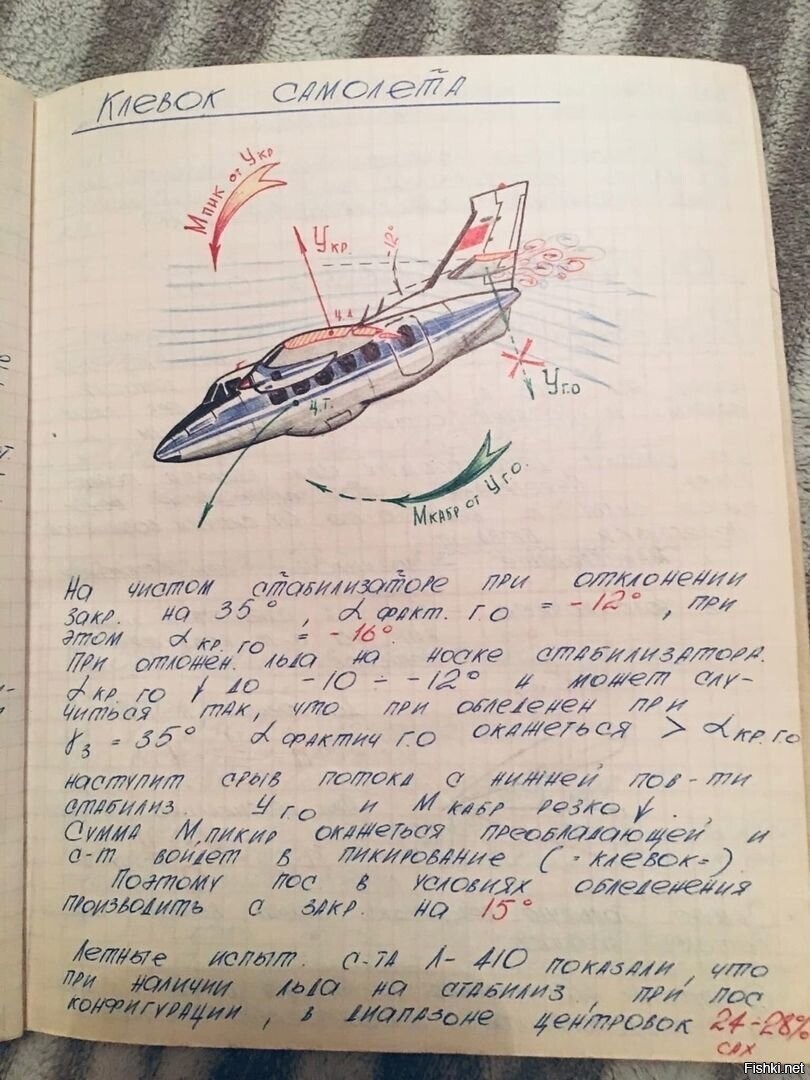 КЛЕВОК САМОЛЕТА
М пик от Укр
Укр.
-12°
ц.д.
ц.т.
Уг.о
М кабр от Уг.о.
На чистом стабилизаторе при отклонении
закр. на 35°, α факт. г.о = -12°, при
этом α кр. го = -16°.
При отложен. льда на носке стабилизатора.
α кр. го ↓ до -10 ÷ -12° и может слу-
читься так, что при обледенен при
γз = 35° α фактич г.о окажеться > α кр. г.о
наступит срыв потока с нижней пов-ти
стабилиз. Уг.о и М кабр резко ↓.
Сумма М.пикир окажеться преобладающей и
с-т войдет в пикирование (=клевок=).
Поэтому пос в условиях обледенения
производить с закр. на 15°
Летные испыт. с-та Л-410 показали, что
при наличии льда на стабилиз, при пос
конфигурации, в диапазоне центровок 24÷28%
сах
Fishki.net